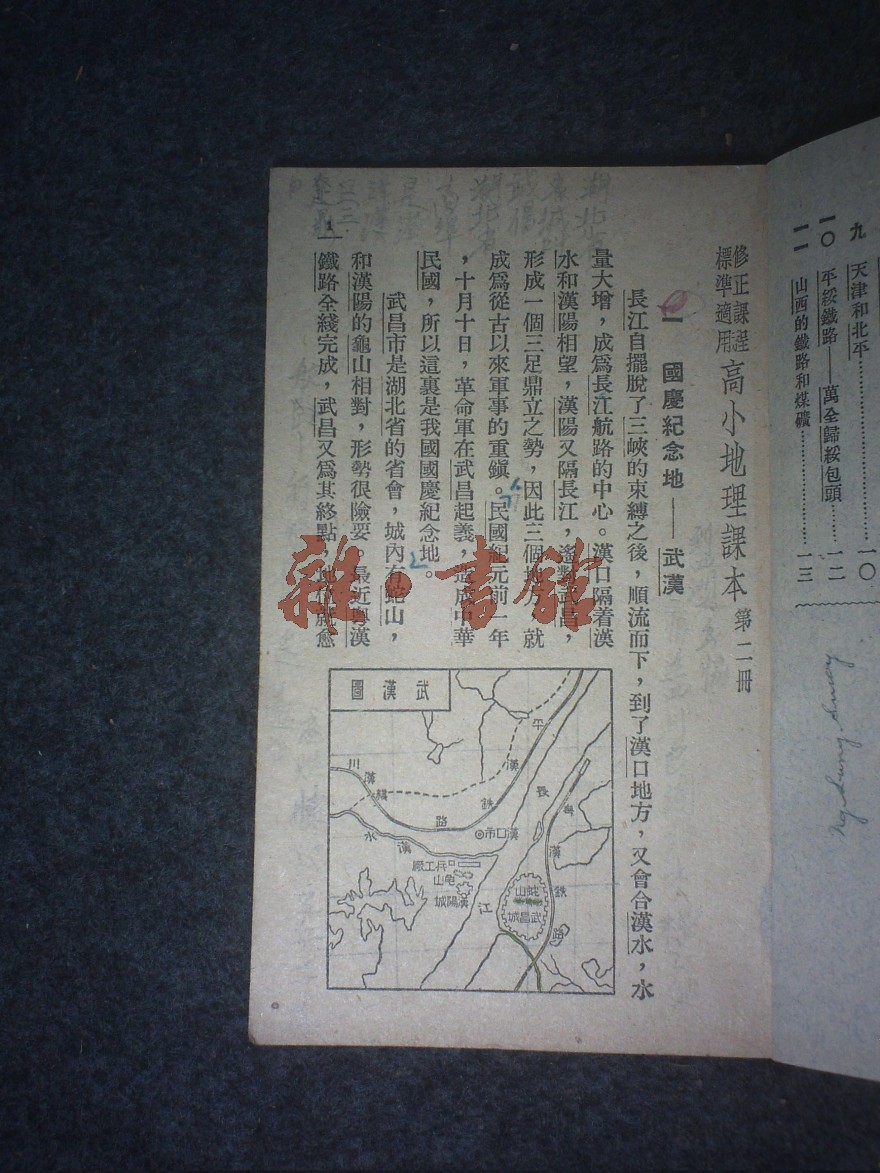 九 天津和北平……………………一〇
一〇 平綏鐵路——萬全歸綏包頭……一二
一一 山西的鐵路和煤礦……………一三
修正課程標準適用 高小地理課本 第二冊
一 國慶紀念地——武漢
長江自擺脫了三峽的束縛之後，順流而下，到了漢口地方，又會合漢水，水
量大增，成爲長江航路的中心。漢口隔着漢
水和漢陽相望，漢陽又隔長江，遙對武昌，
形成一個三足鼎立之勢，因此三個地方，就
成爲從古以來軍事的重鎭。民國紀元前一年
，十月十日，革命軍在武昌起義，造成中華
民國，所以這裏是我國國慶紀念地。
武昌市是湖北省的省會，城內有蛇山，
和漢陽的龜山相對，形勢很險要。最近粵漢
鐵路全綫完成，武昌又爲其終點，地位就愈
1
武漢圖
平漢鐵路
川漢線
漢水
長江
粵漢鐵路
漢口市
兵工廠
龜山
漢陽城
蛇山
武昌城
雜·書館